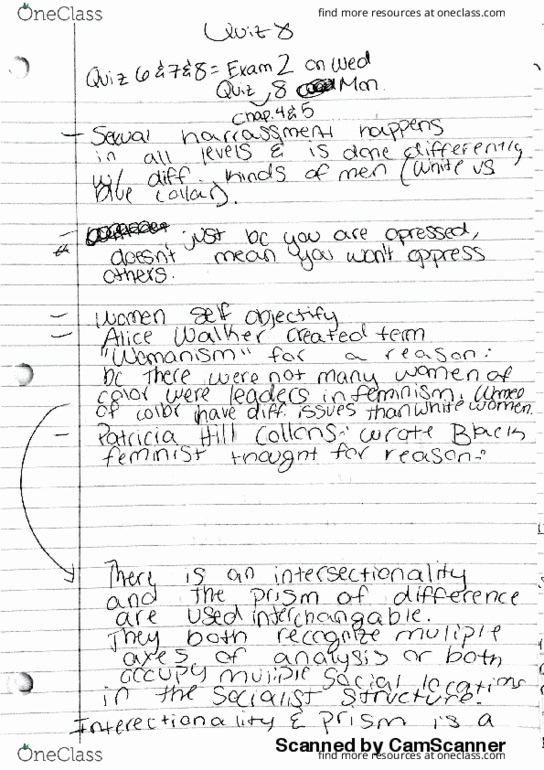 OneClass
find more resources at oneclass.com
Quiz 8
Quiz 6 & 7 & 8 = Exam 2 on Wed
Quiz 8 Mon
Chap. 4 & 5
- Sexual harrassment happens
in all levels & is done differently
w/ diff. kinds of men (White vs
blue collar).
- just bc you are opressed,
* doesnt mean you won't oppress
others.
- Women self objectify
- Alice Walker created term
"Womanism" for a reason:
bc there were not many women of
color were leaders in feminism. Women
of color have diff. issues than white women.
- Patricia Hill Collons: wrote Black
feminist thought for reason:
There is an intersectionality
and the prism of difference
are used interchangable.
They both recognize muliple
axes of analysis or both
occupy muliple social locations
in the socialist structure.
Interectionality & prism is a
Scanned by CamScanner
OneClass
find more resources at oneclass.com